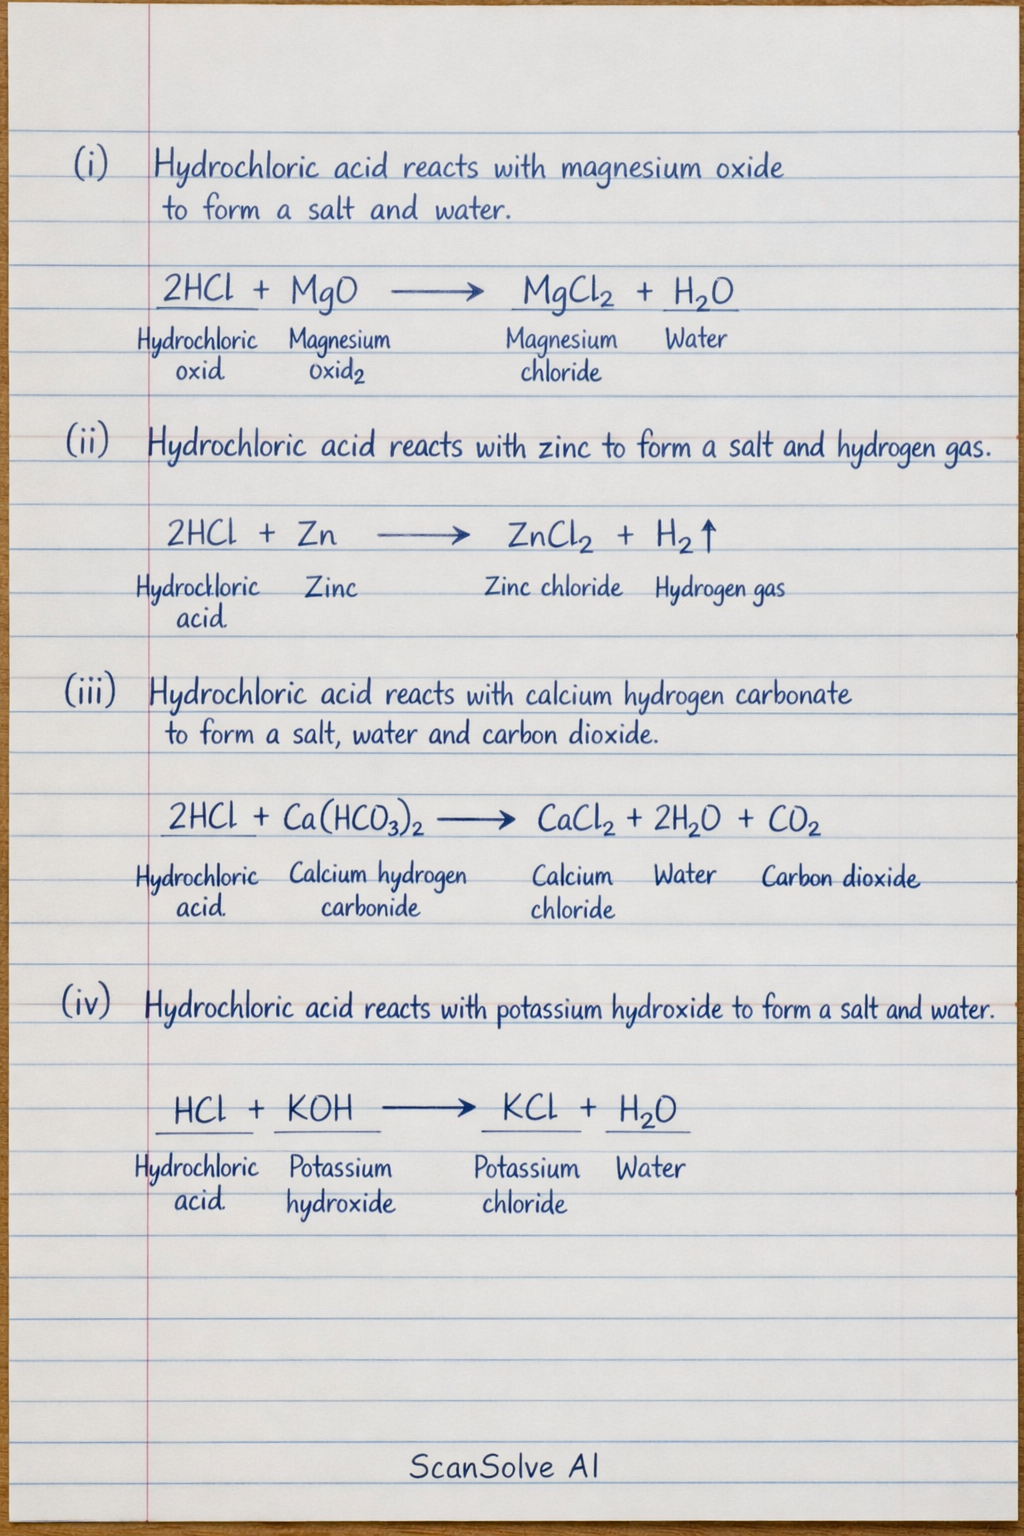 (i) Hydrochloric acid reacts with magnesium oxide
to form a salt and water.
2HCl + MgO ⟶ MgCl₂ + H₂O
Hydrochloric Magnesium Magnesium Water
oxid oxid₂ chloride
(ii) Hydrochloric acid reacts with zinc to form a salt and hydrogen gas.
2HCl + Zn ⟶ ZnCl₂ + H₂↑
Hydrochloric Zinc Zinc chloride Hydrogen gas
acid.
(iii) Hydrochloric acid reacts with calcium hydrogen carbonate
to form a salt, water and carbon dioxide.
2HCl + Ca(HCO₃)₂ ⟶ CaCl₂ + 2H₂O + CO₂
Hydrochloric Calcium hydrogen Calcium Water Carbon dioxide
acid. carbonide chloride
(iv) Hydrochloric acid reacts with potassium hydroxide to form a salt and water.
HCl + KOH ⟶ KCl + H₂O
Hydrochloric Potassium Potassium Water
acid. hydroxide chloride
ScanSolve AI